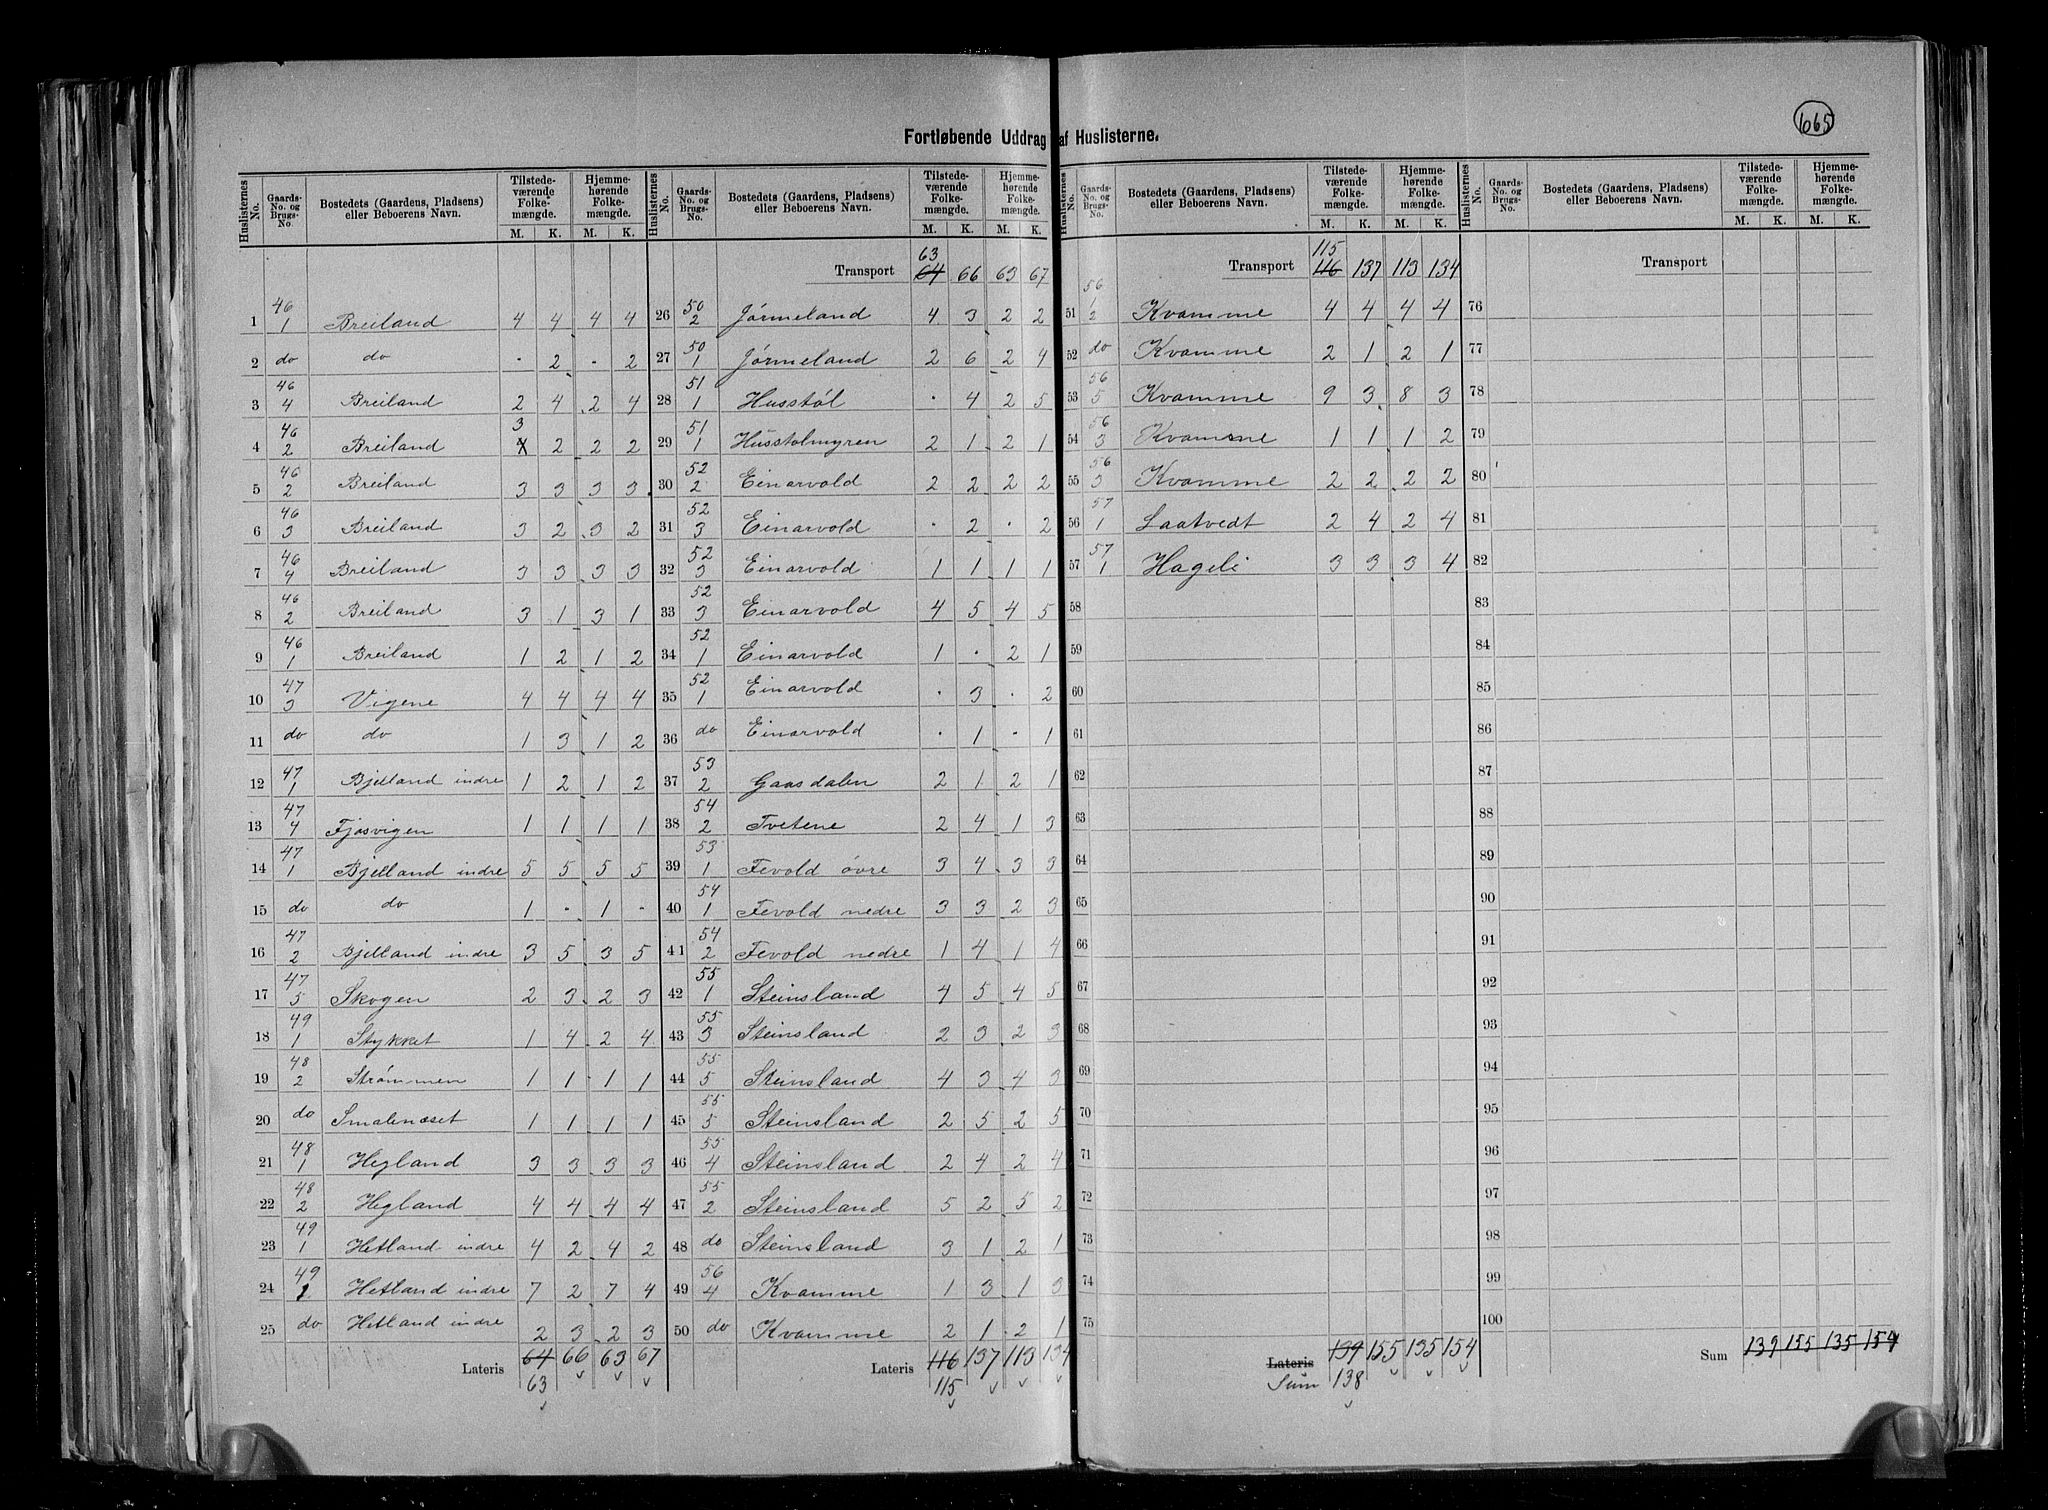 665
Fortløbende Uddrag af Huslisterne.
Huslisternes No. | Gaards-No. og Brugs-No. | Bostedets (Gaardens, Pladsens) eller Beboerens Navn. | Tilstedeværende Folkemængde. M. K. | Hjemmehørende Folkemængde. M. K.
1 | 46 1 | Breiland | 4 | 4 | 4 | 4
2 | do | do | · | 2 | - | 2
3 | 46 4 | Breiland | 2 | 4 | 2 | 4
4 | 46 2 | Breiland | 3 | 2 | 2 | 2
5 | 46 2 | Breiland | 3 | 3 | 3 | 3
6 | 46 3 | Breiland | 3 | 2 | 3 | 2
7 | 46 4 | Breiland | 3 | 3 | 3 | 3
8 | 46 2 | Breiland | 3 | 1 | 3 | 1
9 | 46 1 | Breiland | 1 | 2 | 1 | 2
10 | 47 3 | Vigene | 4 | 4 | 4 | 4
11 | do | do | 1 | 3 | 1 | 2
12 | 47 1 | Bjelland indre | 1 | 2 | 1 | 2
13 | 47 4 | Fjosvigen | 1 | 1 | 1 | 1
14 | 47 1 | Bjelland indre | 5 | 5 | 5 | 5
15 | do | do | 1 | - | 1 | -
16 | 47 2 | Bjelland indre | 3 | 5 | 3 | 5
17 | 47 5 | Skogen | 2 | 3 | 2 | 3
18 | 49 1 | Stykket | 1 | 4 | 2 | 4
19 | 48 2 | Strømmen | 1 | 1 | 1 | 1
20 | do | Smalenæset | 1 | 1 | 1 | 1
21 | 48 1 | Hegland | 3 | 3 | 3 | 3
22 | 48 2 | Hegland | 4 | 4 | 4 | 4
23 | 49 1 | Hetland indre | 4 | 2 | 4 | 2
24 | 49 2 | Hetland indre | 7 | 2 | 7 | 4
25 | do | Hetland indre | 2 | 3 | 2 | 3
Lateris | 64 | 66 | 63 | 67
63
Huslisternes No. | Gaards-No. og Brugs-No. | Bostedets (Gaardens, Pladsens) eller Beboerens Navn. | Tilstedeværende Folkemængde. M. K. | Hjemmehørende Folkemængde. M. K.
63
Transport | 64 | 66 | 63 | 67
26 | 50 2 | Jørmeland | 4 | 3 | 2 | 2
27 | 50 1 | Jørmeland | 2 | 6 | 2 | 4
28 | 51 1 | Husstøl | · | 4 | 2 | 5
29 | 51 1 | Husstolmyren | 2 | 1 | 2 | 1
30 | 52 2 | Einarvold | 2 | 2 | 2 | 2
31 | 52 3 | Einarvold | · | 2 | · | 2
32 | 52 3 | Einarvold | 1 | 1 | 1 | 1
33 | 52 3 | Einarvold | 4 | 5 | 4 | 5
34 | 52 1 | Einarvold | 1 | · | 2 | 1
35 | 52 1 | Einarvold | · | 3 | · | 2
36 | do | Einarvold | · | 1 | · | 1
37 | 53 2 | Gaasdalen | 2 | 1 | 2 | 1
38 | 54 2 | Tvetene | 2 | 4 | 1 | 3
39 | 53 1 | Fevold øvre | 3 | 4 | 3 | 3
40 | 54 1 | Fevold nedre | 3 | 3 | 2 | 3
41 | 54 2 | Fevold nedre | 1 | 4 | 1 | 4
42 | 55 1 | Steinsland | 4 | 5 | 4 | 5
43 | 55 3 | Steinsland | 2 | 3 | 2 | 3
44 | 55 5 | Steinsland | 4 | 3 | 4 | 3
45 | 55 5 | Steinsland | 2 | 5 | 2 | 5
46 | 55 4 | Steinsland | 2 | 4 | 2 | 4
47 | 55 2 | Steinsland | 5 | 2 | 5 | 2
48 | do | Steinsland | 3 | 1 | 2 | 1
49 | 56 4 | Kvamme | 1 | 3 | 1 | 3
50 | do | Kvamme | 2 | 1 | 2 | 1
Lateris | 116 | 137 | 113 | 134
115
Huslisternes No. | Gaards-No. og Brugs-No. | Bostedets (Gaardens, Pladsens) eller Beboerens Navn. | Tilstedeværende Folkemængde. M. K. | Hjemmehørende Folkemængde. M. K.
115
Transport | 116 | 137 | 113 | 134
51 | 56 1 2 | Kvamme | 4 | 4 | 4 | 4
52 | do | Kvamme | 2 | 1 | 2 | 1
53 | 56 5 | Kvamme | 9 | 3 | 8 | 3
54 | 56 3 | Kvamme | 1 | 1 | 1 | 2
55 | 56 3 | Kvamme | 2 | 2 | 2 | 2
56 | 57 1 | Laatvedt | 2 | 4 | 2 | 4
57 | 57 1 | Hageli | 3 | 3 | 3 | 4
58
59
60
61
62
63
64
65
66
67
68
69
70
71
72
73
74
75
Lateris | 139 | 155 | 135 | 154
Sum 138
Huslisternes No. | Gaards-No. og Brugs-No. | Bostedets (Gaardens, Pladsens) eller Beboerens Navn. | Tilstedeværende Folkemængde. M. K. | Hjemmehørende Folkemængde. M. K.
Transport
76
77
78
79
80
81
82
83
84
85
86
87
88
89
90
91
92
93
94
95
96
97
98
99
100
Sum | 139 | 155 | 135 | 154